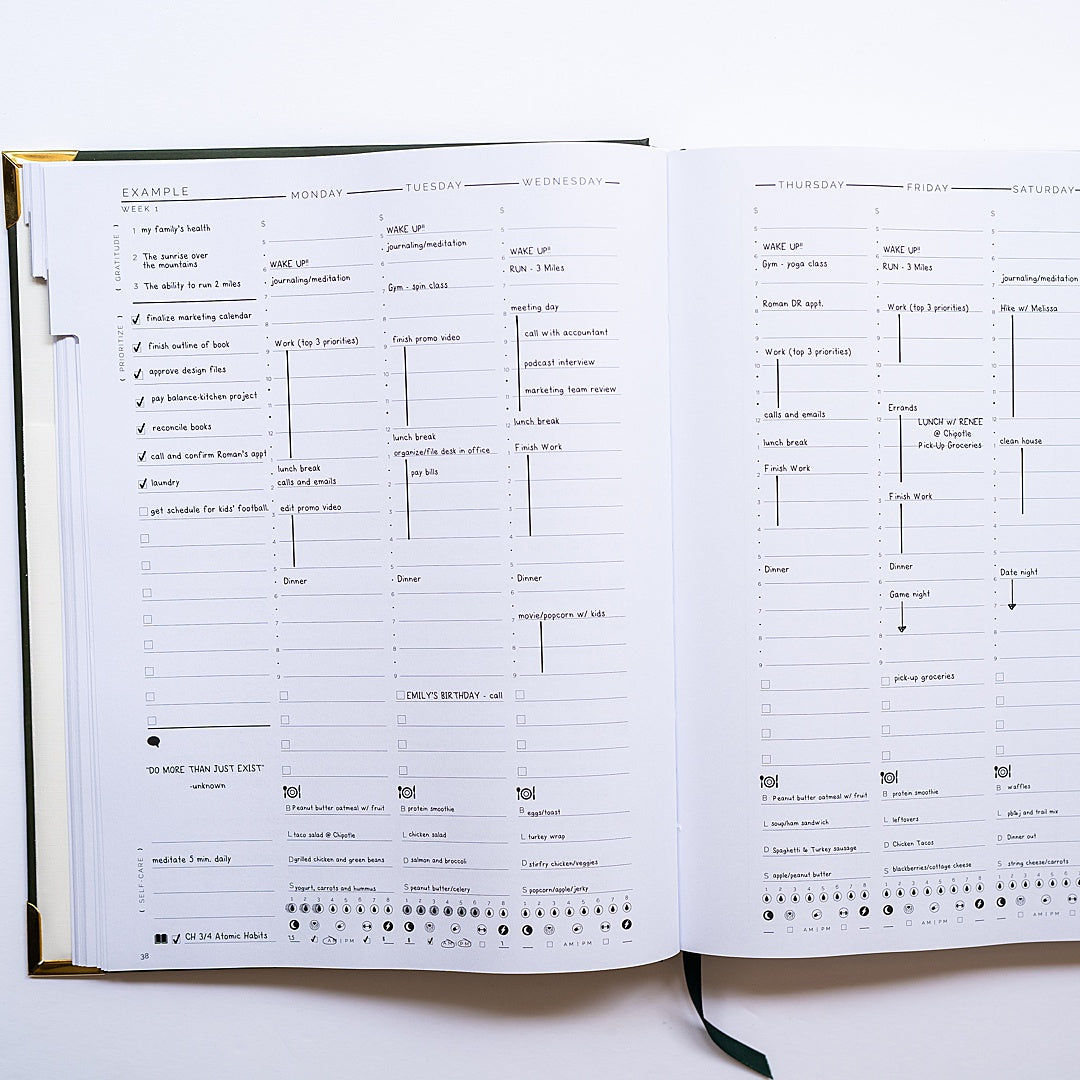 EXAMPLE
WEEK 1
( GRATITUDE )
1 my family's health
2 The sunrise over
the mountains
3 The ability to run 2 miles
( PRIORITIZE )
finalize marketing calendar
finish outline of book
approve design files
pay balance-kitchen project
reconcile books
call and confirm Roman's appt
laundry
get schedule for kids' football
"DO MORE THAN JUST EXIST"
-unknown
( SELF-CARE )
meditate 5 min. daily
CH 3/4 Atomic Habits
38
MONDAY
S
5
6 WAKE UP!!
journaling/meditation
7
8
Work (top 3 priorities)
9
10
11
12
1
lunch break
2 calls and emails
3 edit promo video
4
5
Dinner
6
7
8
9
B Peanut butter oatmeal w/ fruit
L taco salad @ Chipotle
D grilled chicken and green beans
S yogurt, carrots and hummus
1 2 3 4 5 6 7 8
AM | PM
TUESDAY
S
WAKE UP!!
5
journaling/meditation
6
Gym - spin class
7
8
finish promo video
9
10
11
12
lunch break
1 organize/file desk in office
pay bills
2
3
4
5
Dinner
6
7
8
9
EMILY'S BIRTHDAY - call
B protein smoothie
L chicken salad
D salmon and broccoli
S peanut butter/celery
1 2 3 4 5 6 7 8
AM | PM
WEDNESDAY
S
5
WAKE UP!!
6
RUN - 3 Miles
7
meeting day
8
call with accountant
9
podcast interview
10
marketing team review
11
12 lunch break
Finish Work
1
2
3
4
5
Dinner
6
7 movie/popcorn w/ kids
8
9
B eggs/toast
L turkey wrap
D stirfry chicken/veggies
S popcorn/apple/jerky
1 2 3 4 5 6 7 8
AM | PM
THURSDAY
S
5
WAKE UP!!
6
Gym - yoga class
7
Roman DR appt.
8
9
Work (top 3 priorities)
10
11
calls and emails
12
lunch break
1
Finish Work
2
3
4
5
Dinner
6
7
8
9
B Peanut butter oatmeal w/ fruit
L soup/ham sandwich
D Spaghetti & Turkey sausage
S apple/peanut butter
1 2 3 4 5 6 7 8
AM | PM
FRIDAY
S
5
WAKE UP!!
6
RUN - 3 Miles
7
Work (top 3 priorities)
8
9
10
11
Errands
12 LUNCH w/ RENEE
@ Chipotle
1 Pick-Up Groceries
2
3 Finish Work
4
5
Dinner
6
Game night
7
8
9
pick-up groceries
B protein smoothie
L leftovers
D Chicken Tacos
S blackberries/cottage cheese
1 2 3 4 5 6 7 8
AM | PM
SATURDAY
S
5
6
journaling/meditation
7
8 Hike w/ Melissa
9
10
11
12
1 clean house
2
3
4
5
Date night
6
7
8
9
B waffles
L pb&j and trail mix
D Dinner out
S string cheese/carrots
1 2 3 4 5 6
AM | PM